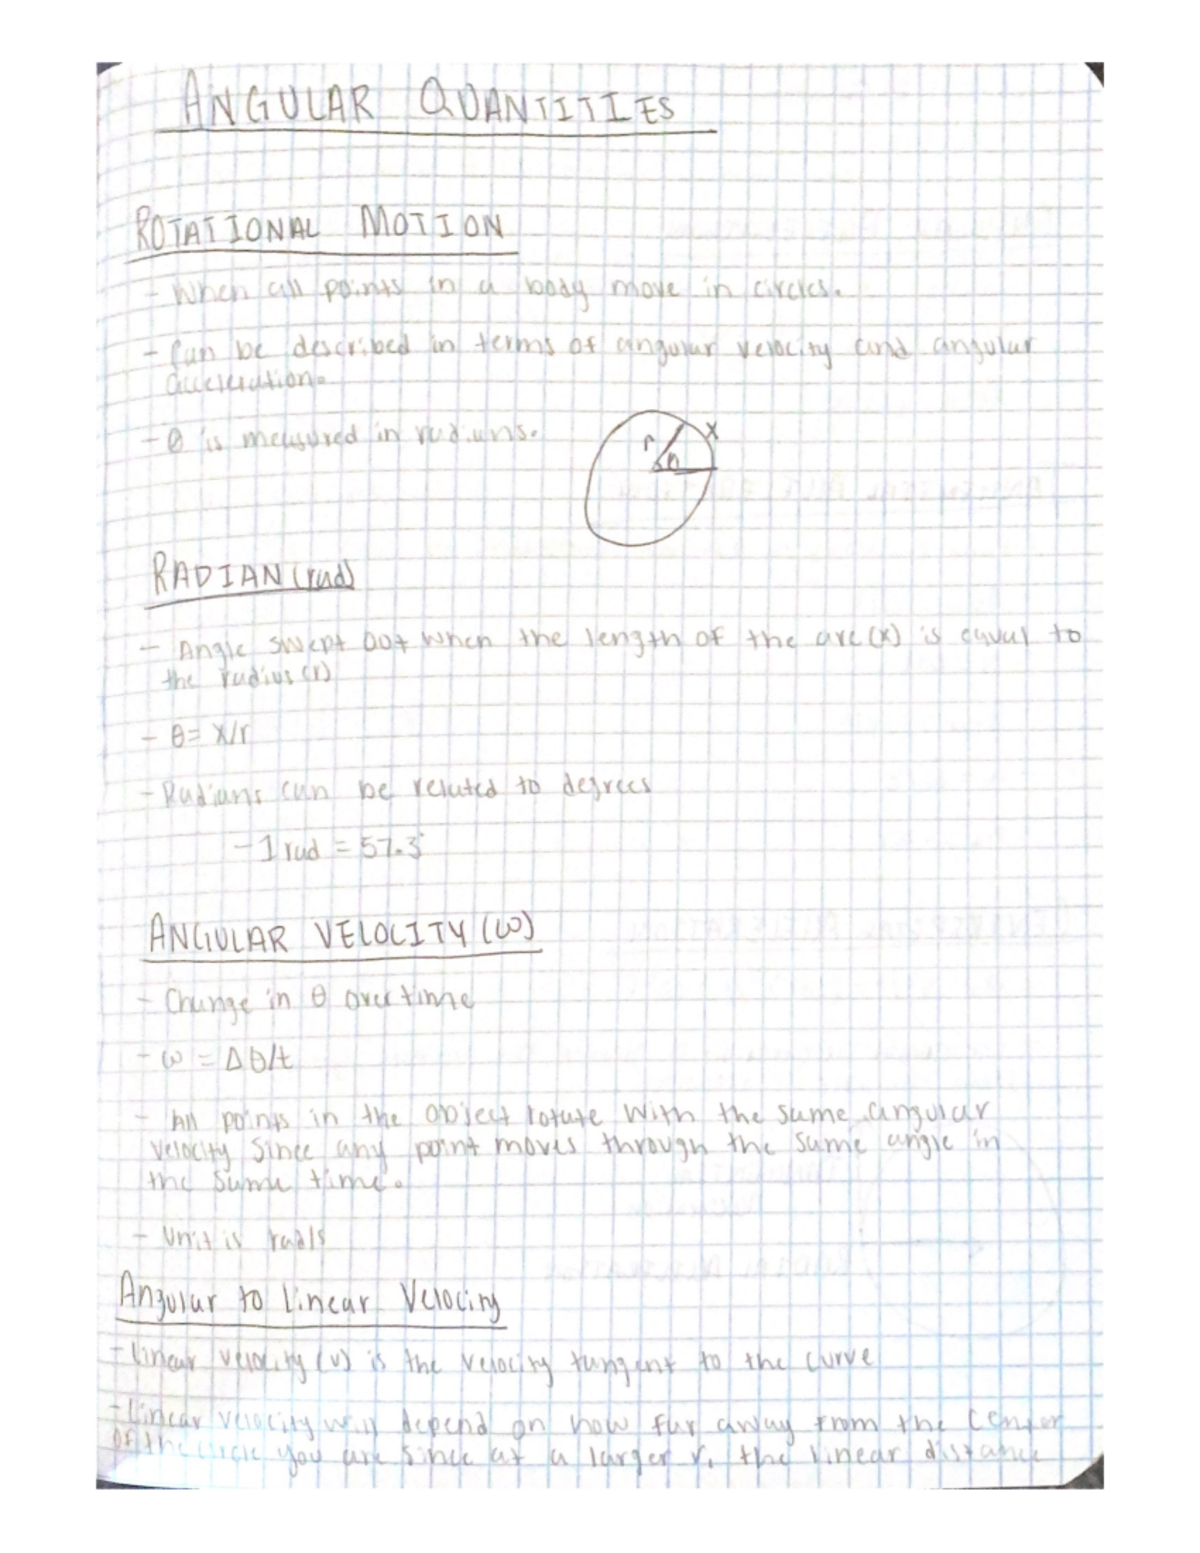 ANGULAR QUANTITIES
ROTATIONAL MOTION
- When all points in a body move in circles.
- Can be described in terms of angular velocity and angular
acceleration.
- θ is measured in radians.
r θ x
RADIAN (rad)
- Angle swept out when the length of the arc (x) is equal to
the radius (r)
- θ = x/r
- Radians can be related to degrees
- 1 rad = 57.3°
ANGULAR VELOCITY (ω)
- Change in θ over time
- ω = Δθ/t
- All points in the object rotate with the same angular
velocity since any point moves through the same angle in
the same time.
- Unit is rad/s
Angular to Linear Velocity
- Linear velocity (v) is the velocity tangent to the curve
- Linear velocity will depend on how far away from the center
of the circle you are since at a larger r, the linear distance